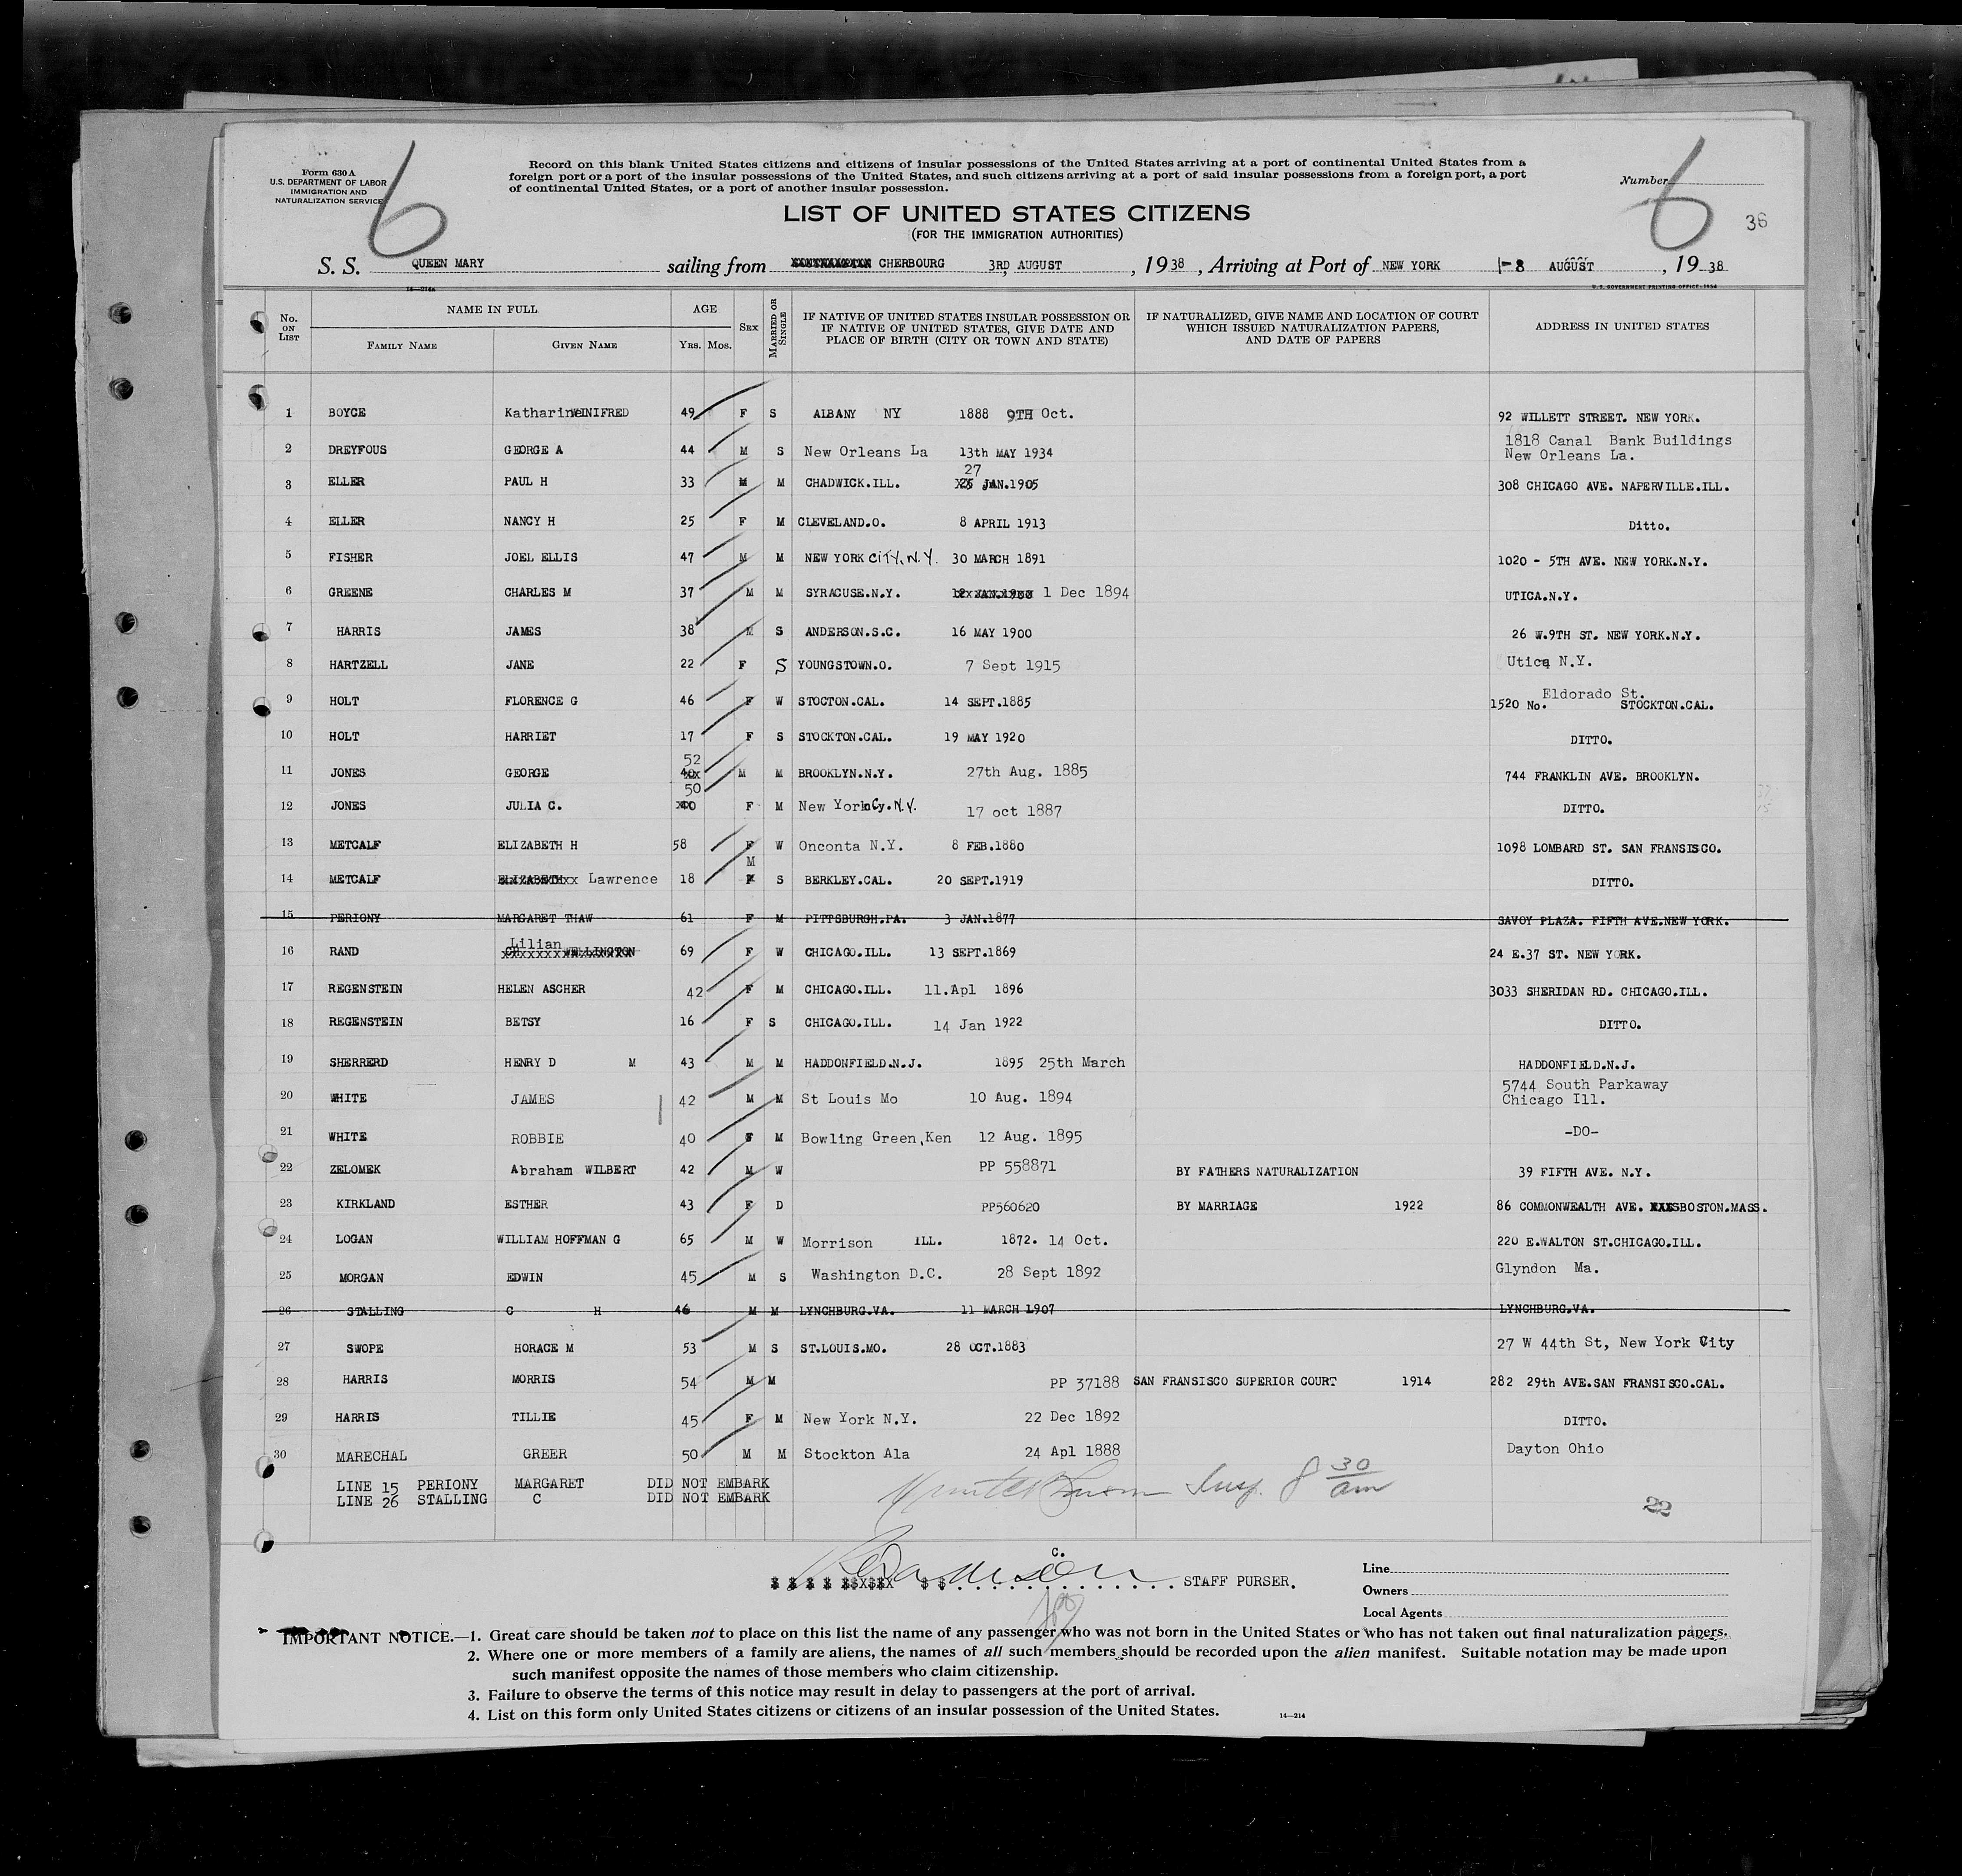 6
6
Form 630 A
U.S. DEPARTMENT OF LABOR
IMMIGRATION AND
NATURALIZATION SERVICE
Record on this blank United States citizens and citizens of insular possessions of the United States arriving at a port of continental United States from a
foreign port or a port of the insular possessions of the United States, and such citizens arriving at a port of said insular possessions from a foreign port, a port
of continental United States, or a port of another insular possession.
Number
36
LIST OF UNITED STATES CITIZENS
(FOR THE IMMIGRATION AUTHORITIES)
S. S. QUEEN MARY sailing from CHERBOURG 3RD AUGUST , 1938 , Arriving at Port of NEW YORK 8 AUGUST , 1938
14—214a
U. S. GOVERNMENT PRINTING OFFICE: 1934
No. ON LIST NAME IN FULL FAMILY NAME GIVEN NAME AGE YRS. MOS. SEX MARRIED OR SINGLE IF NATIVE OF UNITED STATES INSULAR POSSESSION OR IF NATIVE OF UNITED STATES, GIVE DATE AND PLACE OF BIRTH (CITY OR TOWN AND STATE) IF NATURALIZED, GIVE NAME AND LOCATION OF COURT WHICH ISSUED NATURALIZATION PAPERS, AND DATE OF PAPERS ADDRESS IN UNITED STATES
1 BOYCE Katharine WINIFRED 49 F S ALBANY NY 1888 9TH Oct. 92 WILLETT STREET. NEW YORK.
2 DREYFOUS GEORGE A 44 M S New Orleans La 13th MAY 1934 1818 Canal Bank Buildings New Orleans La.
3 ELLER PAUL H 33 M M CHADWICK.ILL. 27 JAN.1905 308 CHICAGO AVE. NAPERVILLE.ILL.
4 ELLER NANCY H 25 F M CLEVELAND.O. 8 APRIL 1913 Ditto.
5 FISHER JOEL ELLIS 47 M M NEW YORK CITY, N.Y. 30 MARCH 1891 1020 - 5TH AVE. NEW YORK.N.Y.
6 GREENE CHARLES M 37 M M SYRACUSE.N.Y. 1 Dec 1894 UTICA.N.Y.
7 HARRIS JAMES 38 M S ANDERSON.S.C. 16 MAY 1900 26 W.9TH ST. NEW YORK.N.Y.
8 HARTZELL JANE 22 F S YOUNGSTOWN.O. 7 Sept 1915 Utica N.Y.
9 HOLT FLORENCE G 46 F W STOCTON.CAL. 14 SEPT.1885 1520 No. Eldorado St. STOCKTON.CAL.
10 HOLT HARRIET 17 F S STOCKTON.CAL. 19 MAY 1920 DITTO.
11 JONES GEORGE 52 M M BROOKLYN.N.Y. 27th Aug. 1885 744 FRANKLIN AVE. BROOKLYN.
12 JONES JULIA C. 50 F M New York Cy. N.Y. 17 oct 1887 DITTO.
13 METCALF ELIZABETH H 58 F W Onconta N.Y. 8 FEB.1880 1098 LOMBARD ST. SAN FRANSISCO.
14 METCALF ELIZABETH Lawrence 18 M S BERKLEY.CAL. 20 SEPT.1919 DITTO.
15 PERIONY MARGARET THAW 61 F M PITTSBURGH.PA. 3 JAN.1877 SAVOY PLAZA. FIFTH AVE.NEW YORK.
16 RAND Lilian WELLINGTON 69 F W CHICAGO.ILL. 13 SEPT.1869 24 E.37 ST. NEW YORK.
17 REGENSTEIN HELEN ASCHER 42 F M CHICAGO.ILL. 11.Apl 1896 3033 SHERIDAN RD. CHICAGO.ILL.
18 REGENSTEIN BETSY 16 F S CHICAGO.ILL. 14 Jan 1922 DITTO.
19 SHERRERD HENRY D M 43 M M HADDONFIELD.N.J. 1895 25th March HADDONFIELD.N.J.
20 WHITE JAMES 42 M M St Louis Mo 10 Aug. 1894 5744 South Parkaway Chicago Ill.
21 WHITE ROBBIE 40 F M Bowling Green,Ken 12 Aug. 1895 -DO-
22 ZELOMEK Abraham WILBERT 42 M W PP 558871 BY FATHERS NATURALIZATION 39 FIFTH AVE. N.Y.
23 KIRKLAND ESTHER 43 F D PP560620 BY MARRIAGE 1922 86 COMMONWEALTH AVE. BOSTON.MASS.
24 LOGAN WILLIAM HOFFMAN G 65 M W Morrison ILL. 1872. 14 Oct. 220 E.WALTON ST.CHICAGO.ILL.
25 MORGAN EDWIN 45 M S Washington D.C. 28 Sept 1892 Glyndon Ma.
26 STALLING C H 46 M M LYNCHBURG.VA. 11 MARCH 1907 LYNCHBURG.VA.
27 SWOPE HORACE M 53 M S ST.LOUIS.MO. 28 OCT.1883 27 W 44th St, New York City
28 HARRIS MORRIS 54 M M PP 37188 SAN FRANSISCO SUPERIOR COURT 1914 282 29th AVE.SAN FRANSISCO.CAL.
29 HARRIS TILLIE 45 F M New York N.Y. 22 Dec 1892 DITTO.
30 MARECHAL GREER 50 M M Stockton Ala 24 Apl 1888 Dayton Ohio
LINE 15 PERIONY MARGARET DID NOT EMBARK
LINE 26 STALLING C DID NOT EMBARK
Insp. 8 30 am
22
C.
STAFF PURSER.
Line
Owners
Local Agents
IMPORTANT NOTICE.—1. Great care should be taken not to place on this list the name of any passenger who was not born in the United States or who has not taken out final naturalization papers.
2. Where one or more members of a family are aliens, the names of all such members should be recorded upon the alien manifest. Suitable notation may be made upon
such manifest opposite the names of those members who claim citizenship.
3. Failure to observe the terms of this notice may result in delay to passengers at the port of arrival.
4. List on this form only United States citizens or citizens of an insular possession of the United States.
14—214